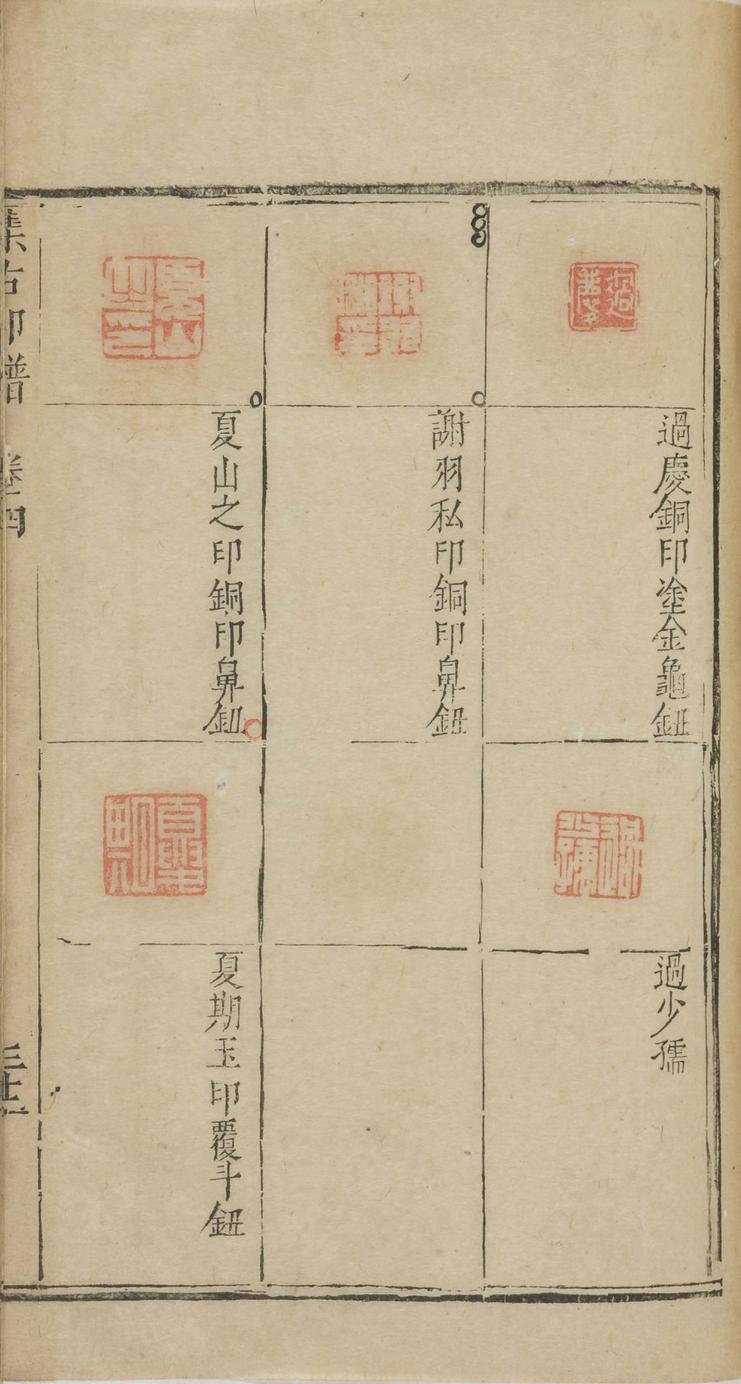 過慶銅印塗金龜鈕
過少孺
謝羽私印銅印鼻鈕
夏山之印銅印鼻鈕
夏期玉印覆斗鈕
集古印譜 卷四